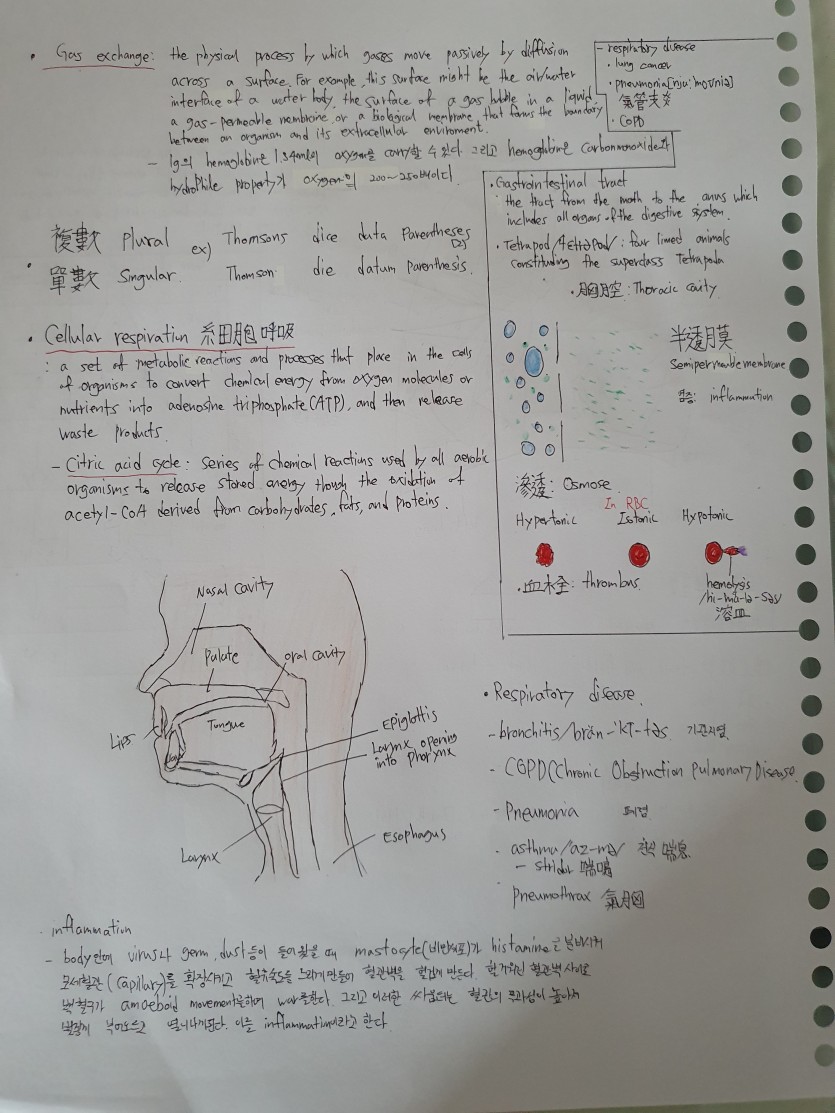 • Gas exchange: the physical process by which gases move passively by diffusion
across a surface. For example, this surface might be the air/water
interface of a water body, the surface of a gas bubble in a liquid
a gas-permeable membrane, or a biological membrane that forms the boundary
between an organism and its extracellular enviroment.
- 1g의 hemoglobine 1.34ml의 oxygen을 carry할 수 있다. 그리고 hemoglobine Carbonmonoxide과
hydrophile property가 oxygen의 200~250배이다.
- respiratory disease
• lung cancer
• pneumonia[nju:'moʊniə]
氣管支炎
• COPD
複數 Plural ex) Thomsons dice data Parentheses
• 單數 Singular. Thomson die datum parenthesis.
• Gastrointestinal tract
the tract from the moth to the anus which
includes all organs of the digestive system.
• Tetrapod/tetrəpɒd/: four limed animals
constituding the superclass Tetrapoda
• 胸腔: Thoracic cavity
半透膜
Semipermeable membrane
염증: inflammation
滲透: Osmose
In RBC
Hypertonic Isotonic Hypotonic
• 血栓: thrombus.
hemolysis
/hi-mä-lə-səs/
溶血
• Cellular respiration 細胞呼吸
: a set of metabolic reactions and processes that place in the cells
of organisms to convert chemical energy from oxygen molecules or
nutrients into adenosine triphosphate(ATP), and then release
waste products.
- Citric acid cycle: Series of chemical reactions used by all aerobic
organisms to release stored energy though the oxidation of
acetyl-CoA derived from carbohydrates, fats, and proteins.
Nasal cavity
Palate
oral cavity
Tongue
Lips
Jaw
Epiglottis
Larynx opening
into pharynx
Larynx
Esophagus
• Respiratory disease.
- bronchitis/brän-ˈkī-təs 기관지염.
- COPD(Chronic Obstruction Pulmonary Disease
- Pneumonia 폐렴
- asthma/az-mə/ 천식 喘息.
- stridor 喘鳴
Pneumothrax 氣胸
• inflammation
- body안에 virus나 germ, dust등이 들어왔을 때 mastocyte(비만세포)가 histamine을 분비시켜
모세혈관(Capillary)를 확장시키고 혈류속도를 느리게 만들어 혈관벽을 헐겁게 만든다. 헐거워진 혈관벽 사이로
백혈구가 amoeboid movement을하며 war를한다. 그리고 이러한 싸움터는 혈관의 투과성이 높아져
빨갛게 부어오르고 열이나게된다. 이를 inflammation이라고 한다.